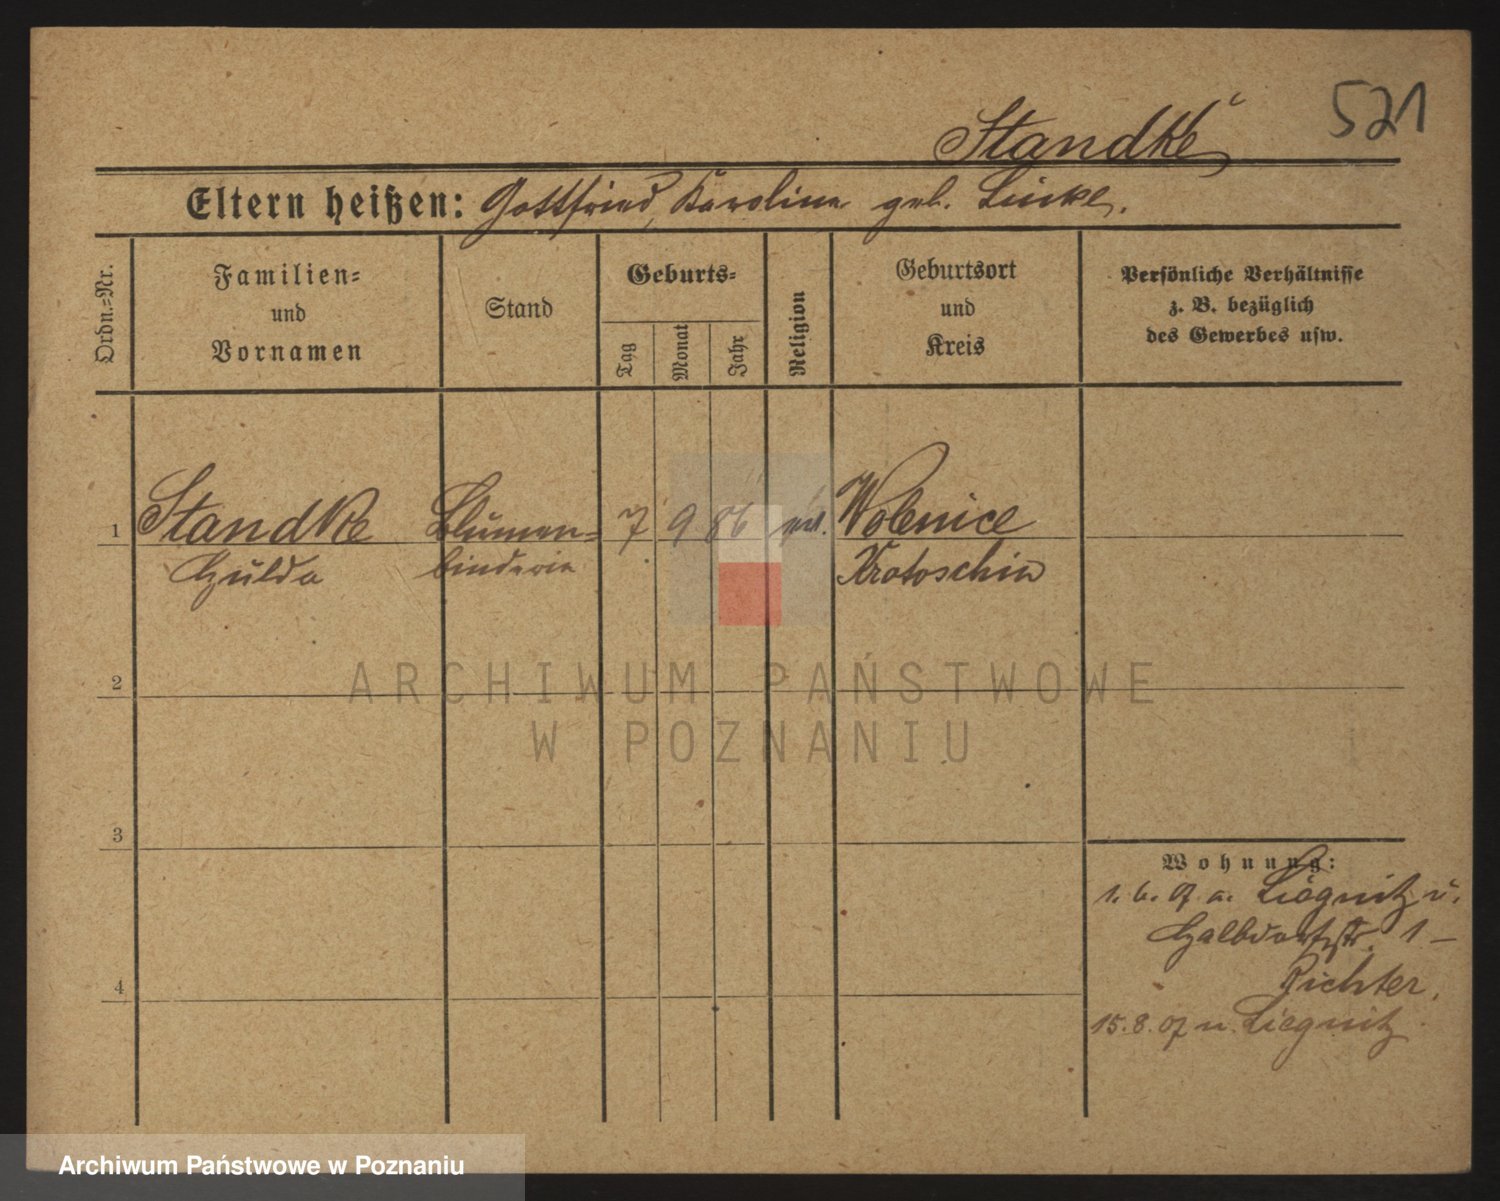 521
Standke
Eltern heißen: Gottfried, Karoline geb. Linke.
Ordn.=Nr.
Familien=
und
Vornamen
Stand
Geburts=
Tag
Monat
Jahr
Religion
Geburtsort
und
Kreis
Persönliche Verhältnisse
z. B. bezüglich
des Gewerbes usw.
1
Standke
Hulda
Blumen=
binderin
7
9
86
ev.
Wolenice
Krotoschin
2
3
4
Wohnung:
1. 6. 07 a. Liegnitz n.
Halbdorfstr. 1 –
Richter.
15. 8. 07 n. Liegnitz
ARCHIWUM PAŃSTWOWE
W POZNANIU
Archiwum Państwowe w Poznaniu